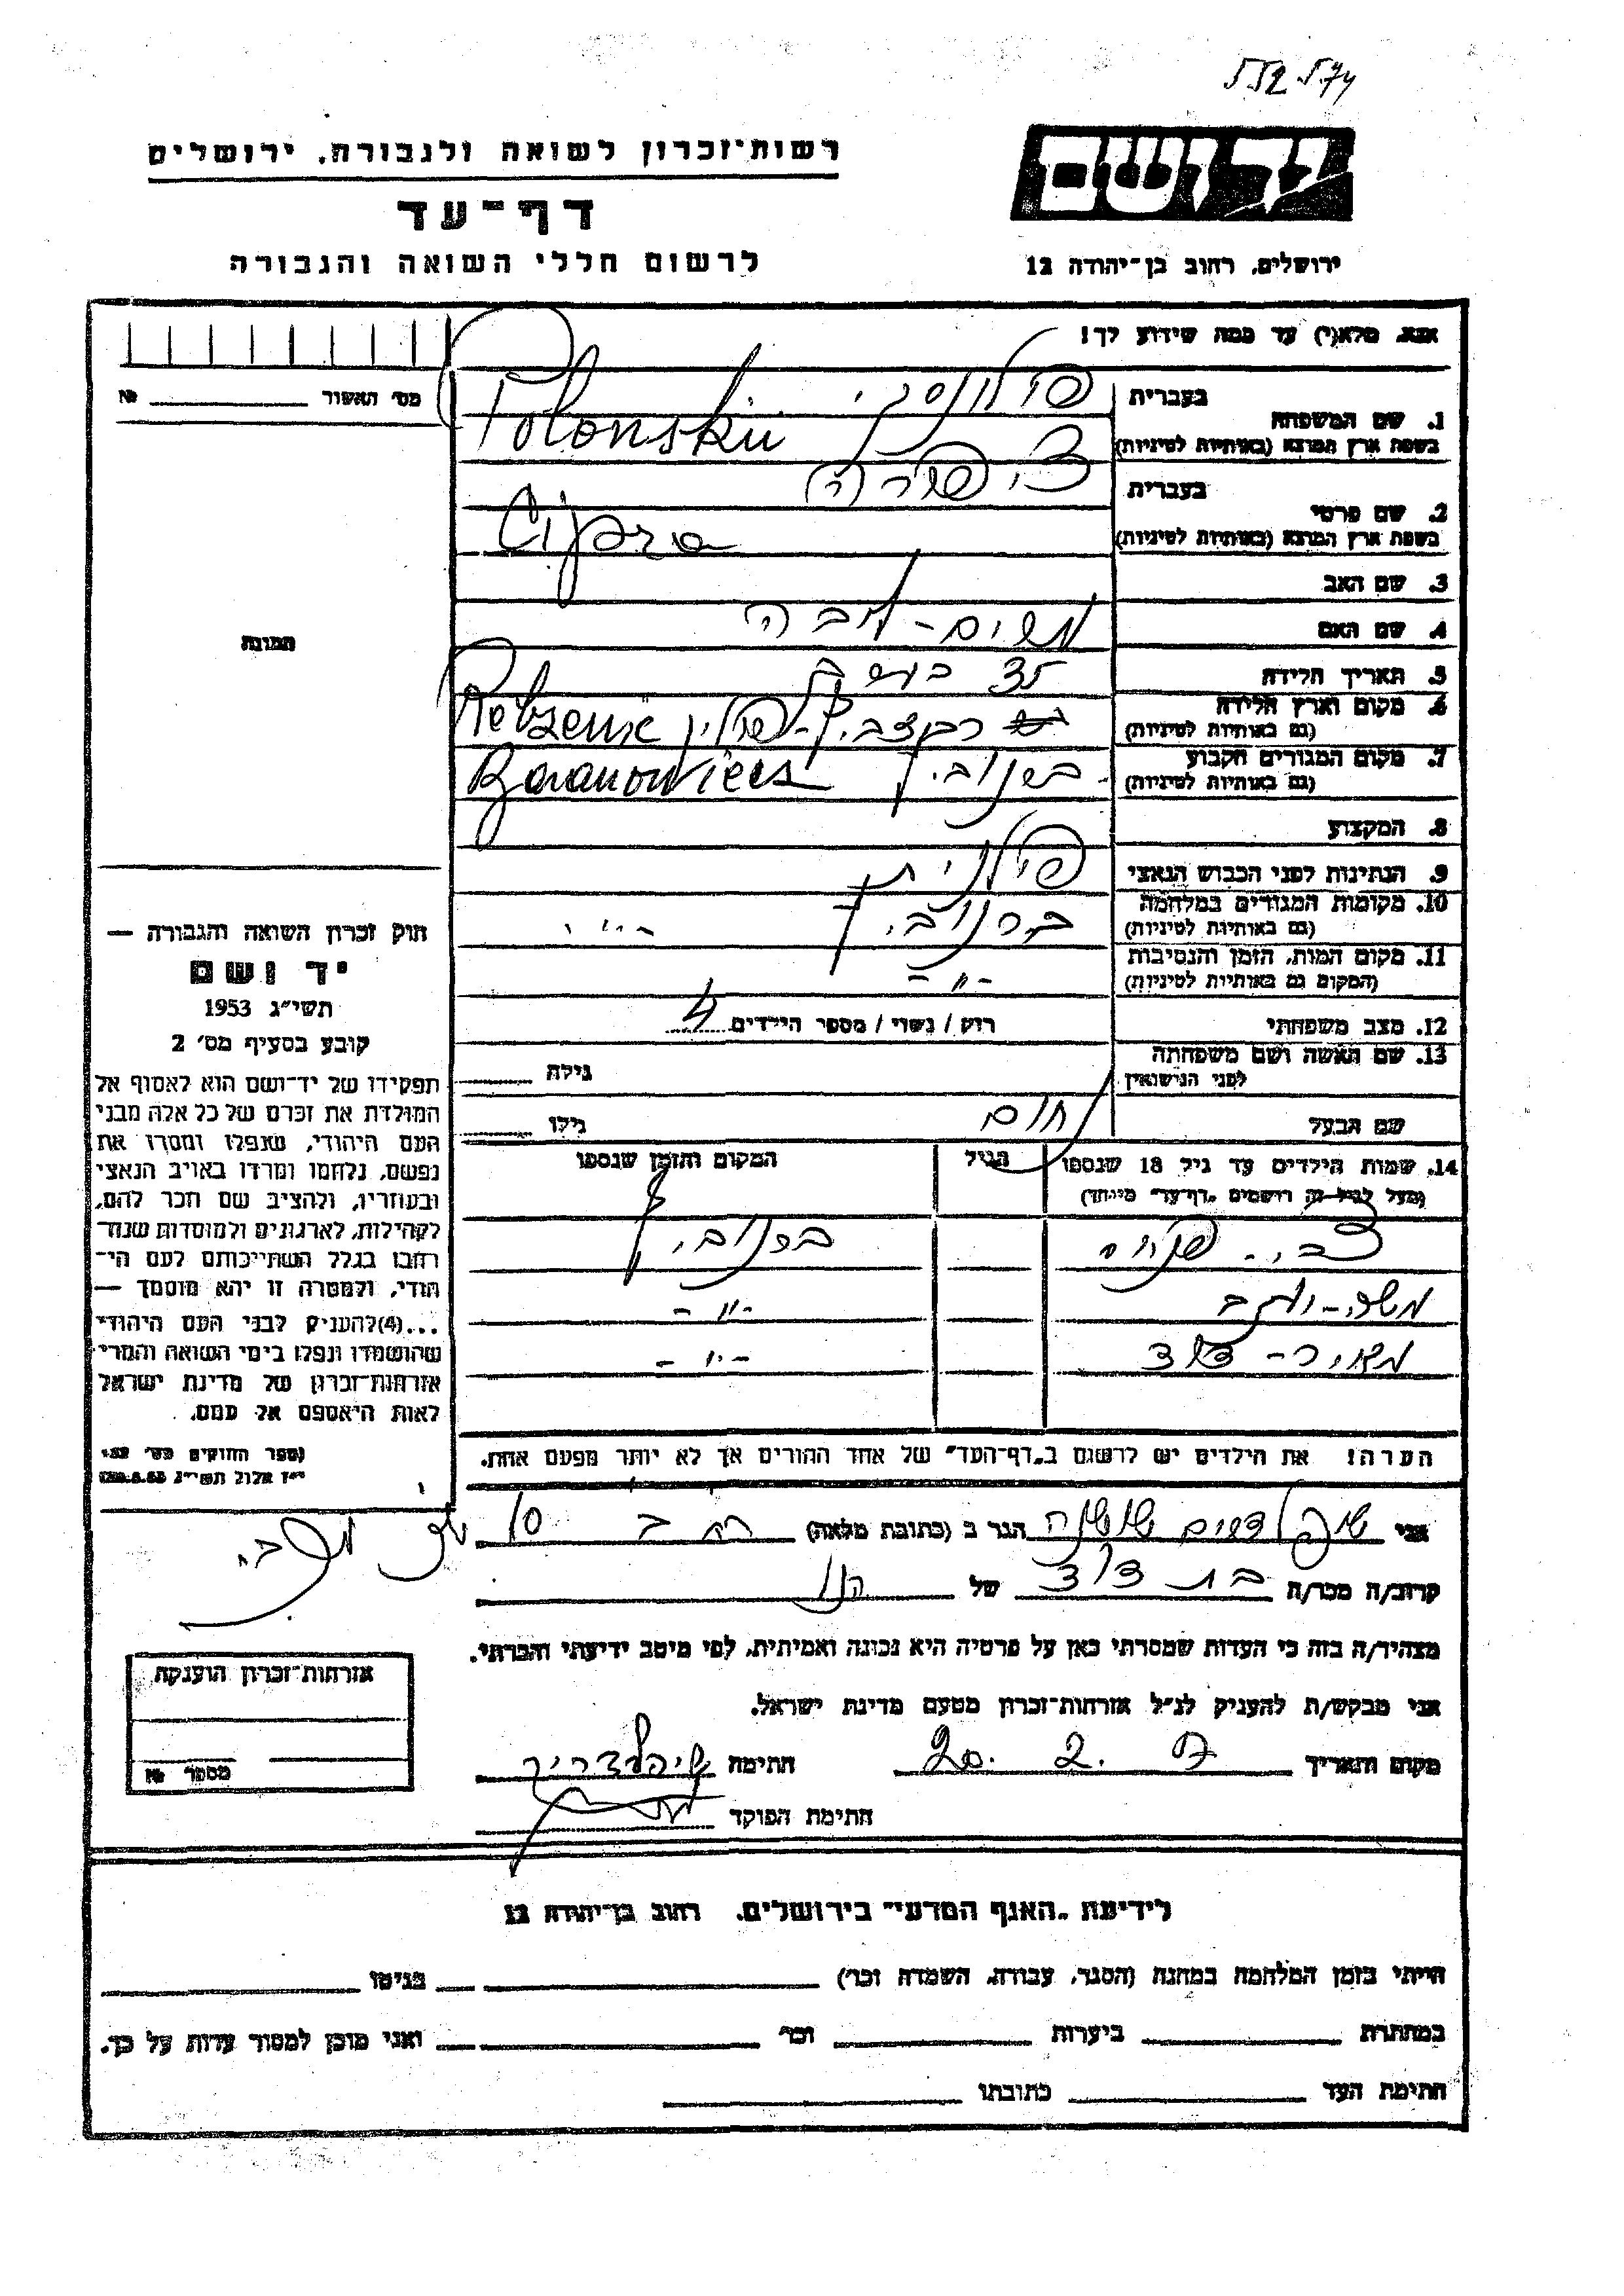 רשות־זכרון לשואה ולגבורה, ירושלים
דף־עד
לרשום חללי השואה והגבורה
יד ושם
ירושלים, רחוב בן־יהודה 12
אנא, מלא(י) עד כמה שידוע לך!
מס' האשור № 
1. שם המשפחה
בעברית פולונסקי
בשפת ארץ המוצא (באותיות לטיניות) Polonskii
2. שם פרטי
בעברית ציפורה
בשפת ארץ המוצא (באותיות לטיניות) Cipora
3. שם האב
4. שם האם
5. תאריך הלידה 35
6. מקום וארץ הלידה
(גם באותיות לטיניות)
7. מקום המגורים הקבוע
(גם באותיות לטיניות) Baranowicz
8. המקצוע
9. הנתינות לפני הכבוש הנאצי פולנית
10. מקומות המגורים במלחמה
(גם באותיות לטיניות) ברנוביץ
11. מקום המות, הזמן והנסיבות
(המקום גם באותיות לטיניות) -״-
12. מצב משפחתי רוק / נשוי / מספר הילדים 4
13. שם האשה ושם משפחתה
לפני הנישואין
גילה
שם הבעל
גילו
14. שמות הילדים עד גיל 18 שנספו
(מעל לגיל זה רושמים "דף־עד" מיוחד)
הגיל
המקום והזמן שנספו
ברנוביץ
משה-יעקב -״-
מאיר-דוד -״-
הערה! את הילדים יש לרשום ב"דף־העד" של אחד ההורים אך לא יותר מפעם אחת.
תמונה
חוק זכרון השואה והגבורה —
יד ושם
תשי״ג 1953
קובע בסעיף מס' 2
תפקידו של יד־ושם הוא לאסוף אל
המולדת את זכרם של כל אלה מבני
העם היהודי, שנפלו ומסרו את
נפשם, נלחמו ומרדו באויב הנאצי
ובעוזריו, ולהציב שם וזכר להם,
לקהילות, לארגונים ולמוסדות שנח־
רבו בגלל השתייכותם לעם הי־
הודי, ולמטרה זו יהא מוסמך —
...(4)להעניק לבני העם היהודי
שהושמדו ונפלו בימי השואה והמרי
אזרחות־זכרון של מדינת ישראל
לאות היאספם אל עמם.
(ספר החוקים מס' 132
י״ז אלול תשי״ג 28.8.53)
אני שושנה הגר ב (כתובת מלאה) 10
קרוב/ה מכר/ה בת דוד של
מצהיר/ה בזה כי העדות שמסרתי כאן על פרטיה היא נכונה ואמיתית, לפי מיטב ידיעתי והכרתי.
אני מבקש/ת להעניק לנ״ל אזרחות־זכרון מטעם מדינת ישראל.
מקום ותאריך 20. 2. חתימה
חתימת הפוקד
אזרחות־זכרון הוענקה
מספר №
לידיעת "האגף המדעי" בירושלים, רחוב בן־יהודה 12
הייתי בזמן המלחמה במחנה (הסגר, עבודה, השמדה וכו') בגיטו
במחתרת ביערות וכו' ואני מוכן למסור עדות על כך.
חתימת העד כתובתו